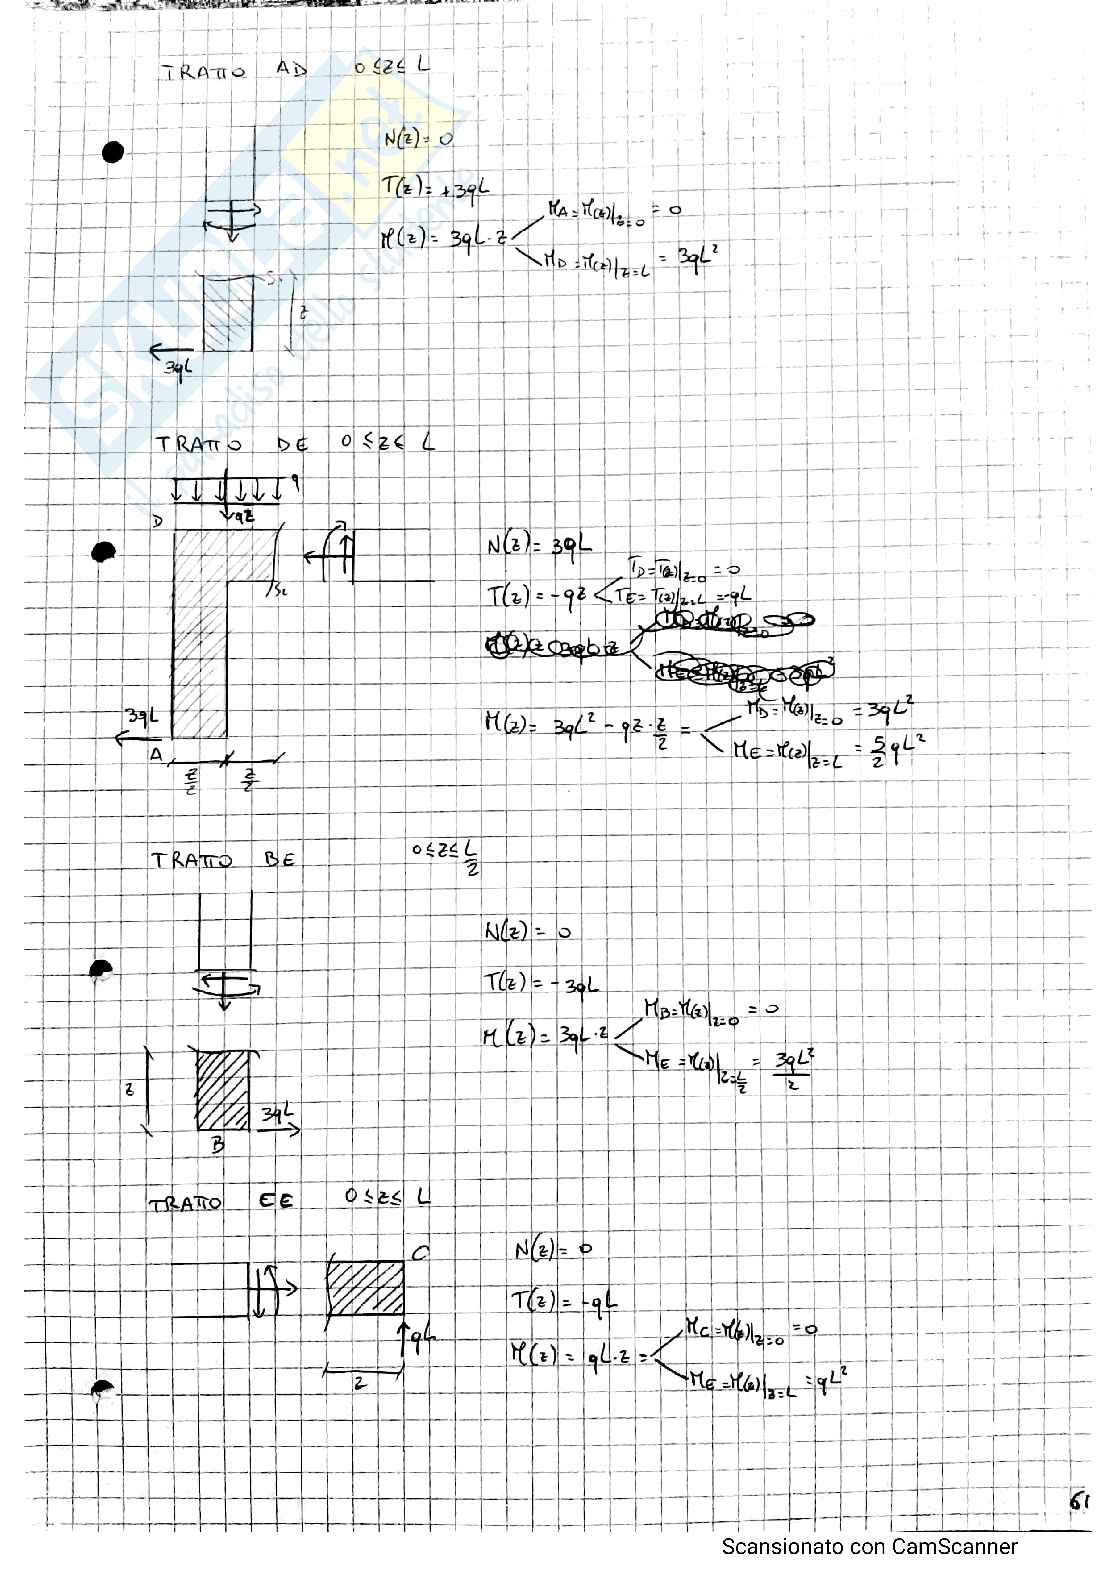 TRATTO AD 0≤z≤L
N(z)= 0
T(z)= +3qL
M(z)= 3qL·z
MA=M(z)|z=0 = 0
MD=M(z)|z=L = 3qL²
S1
z
3qL
TRATTO DE 0≤z≤L
q
qz
D
S2
N(z)= 3qL
T(z)= -qz
TD=T(z)|z=0 = 0
TE=T(z)|z=L = -qL
M(z)= 3qL² - qz·z/2 =
MD=M(z)|z=0 = 3qL²
ME=M(z)|z=L = 5/2 qL²
3qL
A
z/2 z/2
TRATTO BE 0≤z≤L/2
N(z)= 0
T(z)= -3qL
M(z)= 3qL·z
MB=M(z)|z=0 = 0
ME=M(z)|z=L/2 = 3qL²/2
z
3qL
B
TRATTO EE 0≤z≤L
C
N(z)= 0
T(z)= -qL
M(z)= qL·z =
MC=M(z)|z=0 = 0
ME=M(z)|z=L = qL²
qL
z
61
Scansionato con CamScanner
SKUOLA.net
il paradiso dello studente